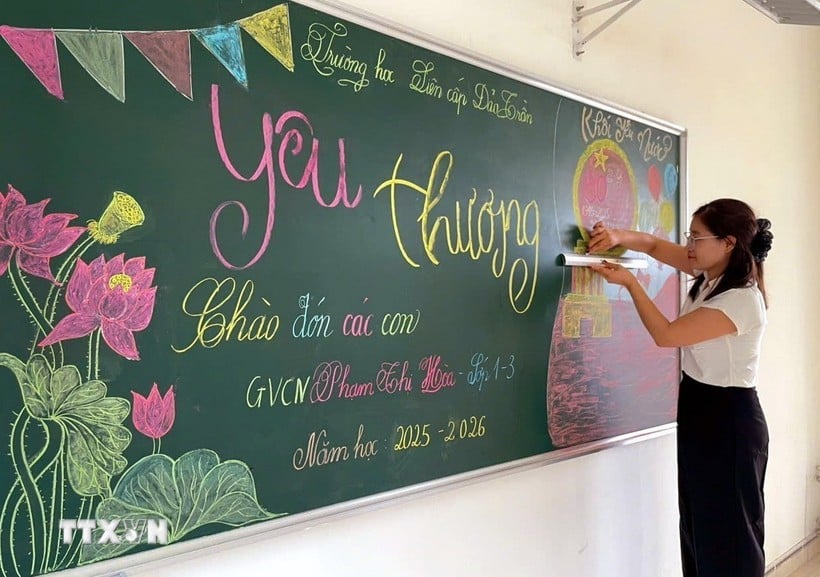 Trường học Liên cấp Dảo Trần
Khối Yêu Nước
Yêu
thương
Chào đón các con
GVCN Phạm Thị Hòa - Lớp 1-3
Năm học: 2025-2026
TTXVN